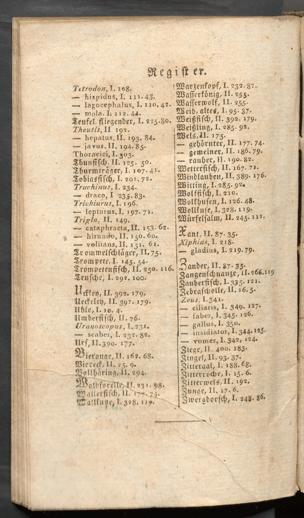 Register.
Tetrodon, I. 108.
— hispidus, I. 111. 43.
— lagocephalus, I. 110. 42.
— mola. I. 112. 44.
Teufel, fliegender, I. 225. 80.
Theutis, II. 192.
— hepatus, II. 193. 84.
— javus, II. 194. 85.
Thoracici, I. 303.
Thunfisch, II. 125. 50.
Thurmträger, I. 107. 41.
Tobiasfisch, I. 201. 72.
Trachinus, I. 234.
— draco, I. 235. 83.
Trichiurus, I. 196.
— lepturus, I. 197. 71.
Trigla, II. 149.
— cataphracta, II. 153. 62.
— hirundo, II. 150. 60.
— volitans, II. 151. 61.
Trommelschläger, II. 75.
Trompete, I. 145. 54.
Trompetenfisch, II. 250. 116.
Trusche, I. 291. 100.
Uckley, II. 392. 179.
Ueckeley, II. 392. 179.
Uhlo, I. 10. 4.
Umberfisch, II. 76.
Uranoscopus, I. 231.
— scaber, I. 232. 82.
Urf, II. 390. 177.
Vieräuge, II. 162. 68.
Viereck, II. 25. 9.
Vollhäring, II. 294.
Waldforelle, II. 231. 98.
Wallerfisch, II. 175. 74.
Wallkupe, I. 328. 119.
Warzenkopf, I. 232. 82.
Wasserkönig, II. 255.
Wasserwolf, II. 255.
Weib, altes, I. 95. 37.
Weißfisch, II. 392. 179.
Weißling, I. 285. 92.
Wels, II. 175.
— gehörnter, II. 177. 74.
— gemeiner, II. 186. 79.
— rauher, II. 190. 82.
Wetterfisch, II. 167. 71.
Windlauben, II. 389. 176.
Witting, I. 285. 92.
Wolffisch, I. 210.
Wollhusen, I. 126. 48.
Wollkuse, I. 328. 119.
Würfelsalm, II. 245. 111.
Xant, II. 87. 35.
Xiphias, I. 218.
— gladius, I. 219. 79.
Zander, II. 87. 35.
Zangenschnauze, II. 266. 119
Zauberfisch, I. 325. 121.
Zebrascholle, II. 16. 5.
Zeus, I. 341.
— ciliaris, I. 349. 127.
— faber, I. 345. 126.
— gallus, I. 350.
— insidiator, I. 344. 125.
— vomer, I. 342. 124.
Ziege, II. 400. 183.
Zingel, II. 93. 37.
Zitteraal, I. 188. 68.
Zitterroche, I. 15. 6.
Zitterwels, II. 192.
Zunge, II. 17. 6.
Zwergdorsch, I. 248. 86.